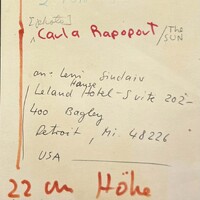 [photo]
Carla Rapoport /The SUN
an: Leni Sinclair
House
Leland Hotel-Suite 202-
400 Bagley
Detroit, Mi. 48226
USA
22 cm Höhe